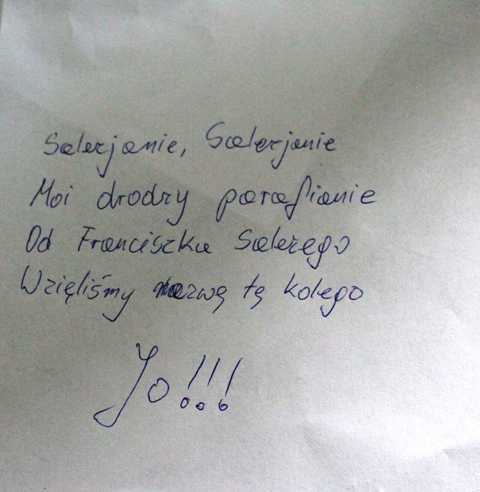 Salezjanie, Salezjanie
Moi drodzy parafianie
Od Franciszka Salezego
Wzięliśmy nazwę tę kolego
Jo!!!